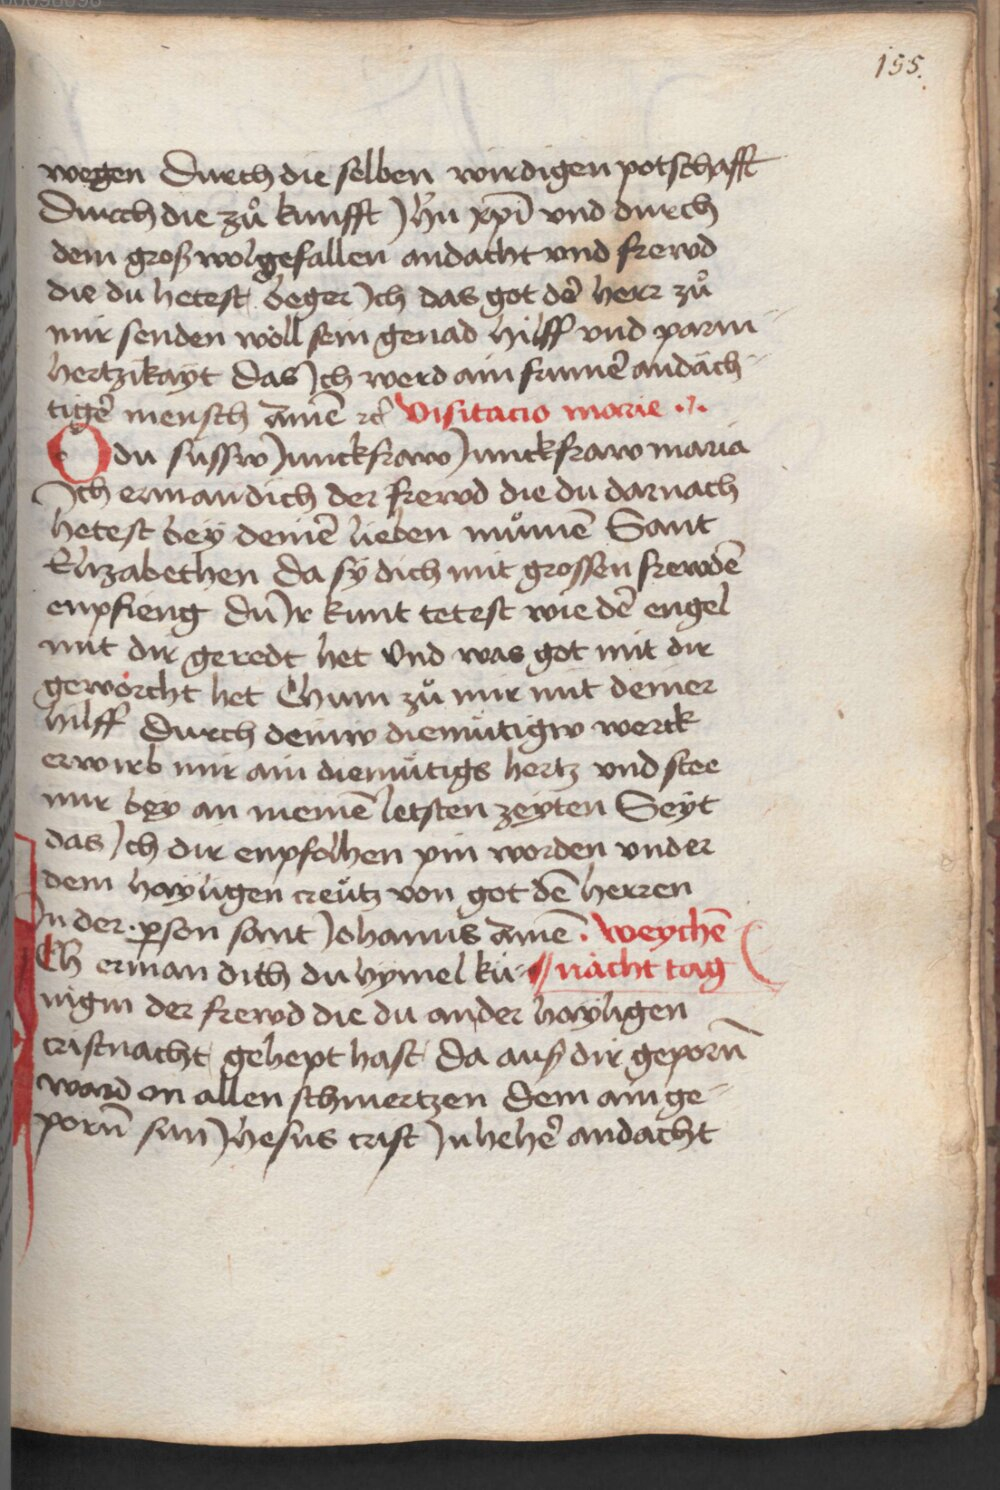 155.
wegen Durch die selben wirdigen potschafft
Durch die zů kunfft Jhu xp̄i vnd durch
dem groß wolgefallen andacht vnd frewd
die du hetest beger Jch das got der̄ herr zů
mir senden wöll sein genad hilff vnd parm¬
hertzikayt das Jch werd ain frumer̄ andäch¬
tiger̄ mensch amē ꝛc̄ Visitacio marie
O du sussw Junckfraw Junckfraw maria
Jch erman dich der frewd die du darnach
hetest bey deinē lieben můmē Sant
Elizabethen da sy dich mit grossen frewdē
enpfieng du Jr kunt tetest wie der̄ engel
mit dir geredt het vnd was got mit dir
geworcht het Chum zů mir mit deiner
hilff durch deinw diemütigw werck
erwirb mir ain diemütigs hertz vnd stee
mir bey an meinē letsten zeyten Seyt
das Jch dir enpfolhen pin worden vnder
dem hayligen creütz von got dē herren
Jn der ꝑson sant Johannis amē. weychē
nächt tag
JCh erman dich du hymel kü¬
nigin der frewd die du an der hayligen
cristnacht gehept hast da auß dir geporn̄
ward on allen schmertzen dem ain ge¬
porn̄ sun Jhesus crist Jn heher̄ andacht